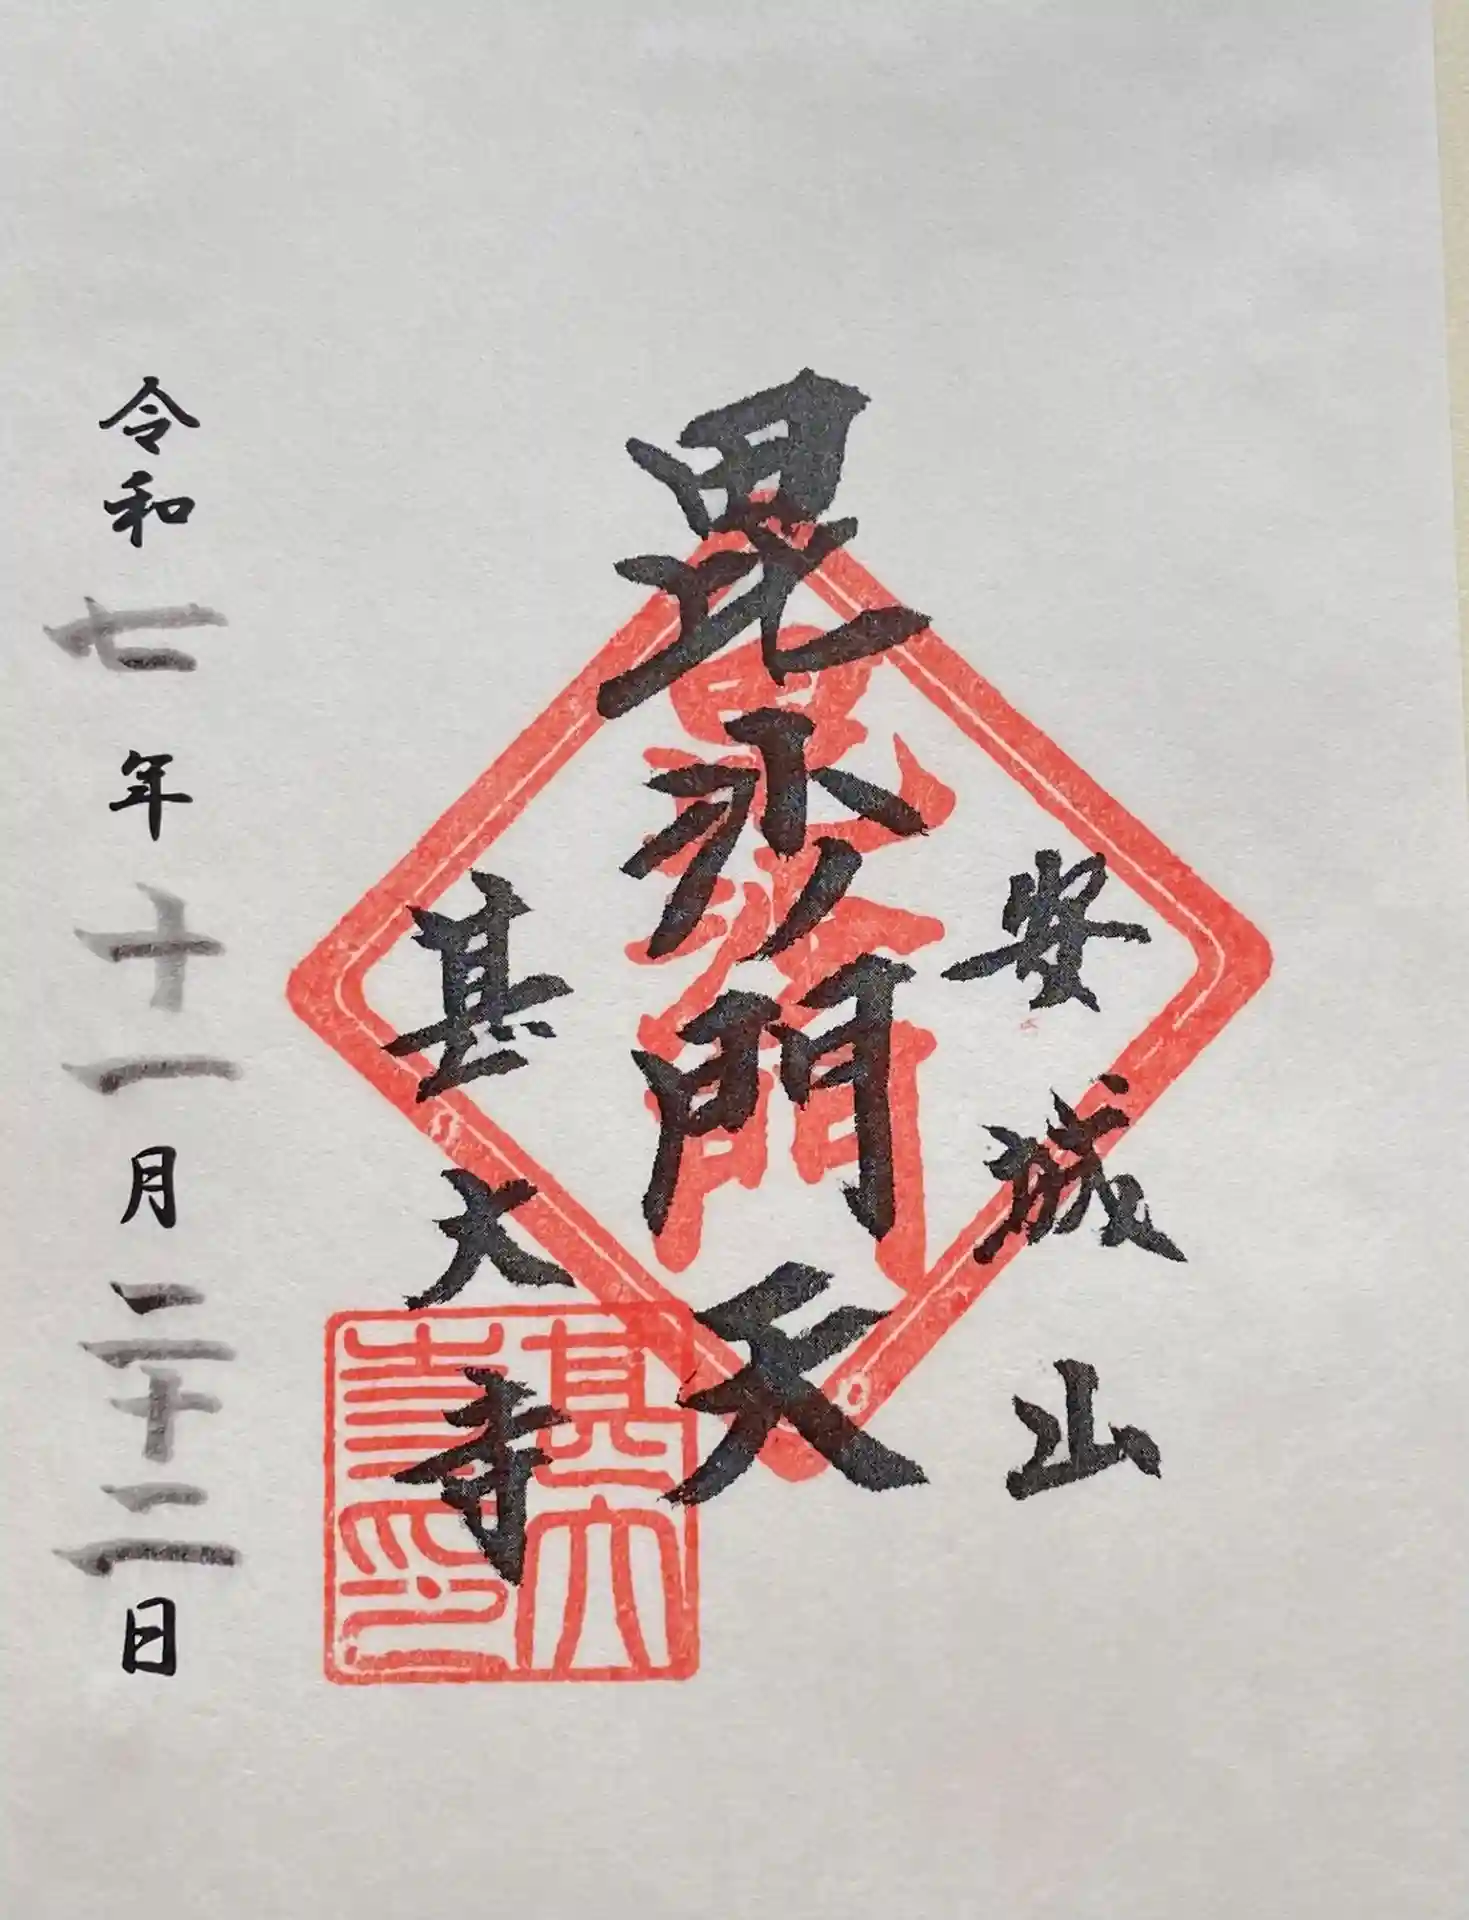 安城山
毘沙門天
甚大寺
令和七年十一月二十二日
毘沙門
甚大
寺印